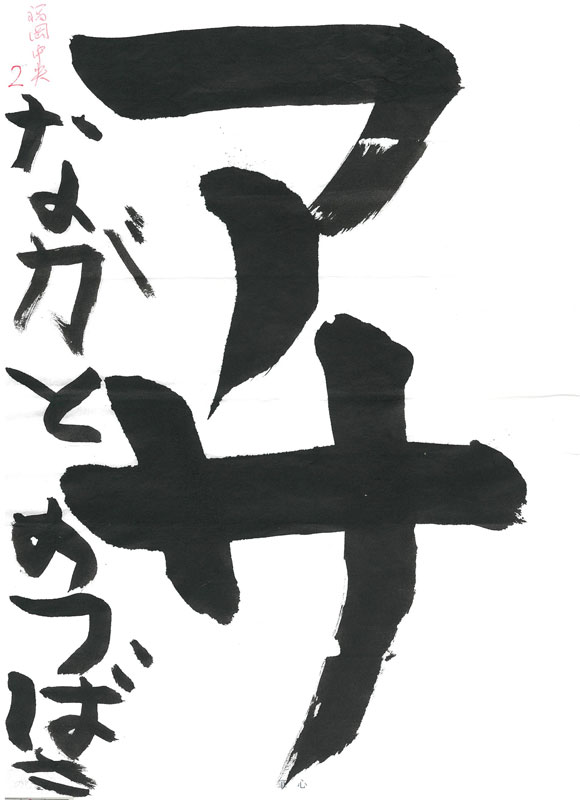 アサ
福岡中央
2
ながとめつばさ